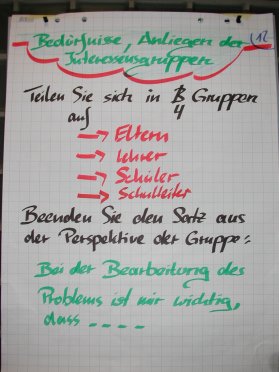 Bedürfnisse, Anliegen der
Interessensgruppen
12
Teilen Sie sich in 4 Gruppen
auf
→ Eltern
→ Lehrer
→ Schüler
→ Schulleiter
Beenden Sie den Satz aus
der Perspektive der Gruppe:
Bei der Bearbeitung des
Problems ist mir wichtig,
dass ----